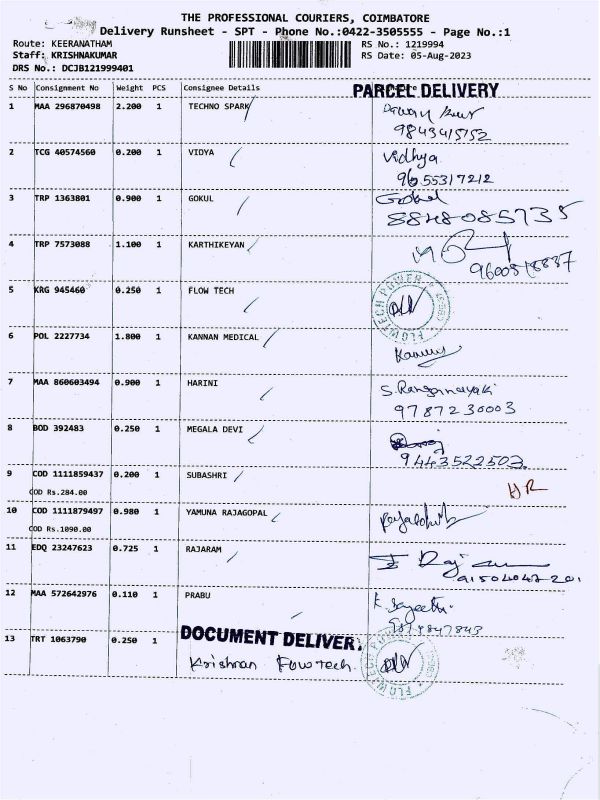 THE PROFESSIONAL COURIERS, COIMBATORE
Delivery Runsheet - SPT - Phone No.:0422-3505555 - Page No.:1
Route: KEERANATHAM
RS No.: 1219994
Staff: KRISHNAKUMAR
RS Date: 05-Aug-2023
DRS No.: DCJB121999401
PARCEL DELIVERY
S No Consignment No Weight PCS Consignee Details
1 MAA 296870498 2.200 1 TECHNO SPARK
9843415152
2 TCG 40574560 0.200 1 VIDYA Vidhya
9655317212
3 TRP 1363801 0.900 1 GOKUL Gokul
8848085735
4 TRP 7573088 1.100 1 KARTHIKEYAN
9600818837
5 KRG 945460 0.250 1 FLOW TECH
FLOWTECH POWER
6 POL 2227734 1.800 1 KANNAN MEDICAL
7 MAA 860603494 0.900 1 HARINI S. Ranganayaki
9787230003
8 BOD 392483 0.250 1 MEGALA DEVI
9443522503
9 COD 1111859437 0.200 1 SUBASHRI
COD Rs.284.00
10 COD 1111879497 0.980 1 YAMUNA RAJAGOPAL
COD Rs.1090.00
11 EDQ 23247623 0.725 1 RAJARAM
12 MAA 572642976 0.110 1 PRABU
13 TRT 1063790 0.250 1 DOCUMENT DELIVER.
Krishnan Fowtech.
FLOWTECH POWER